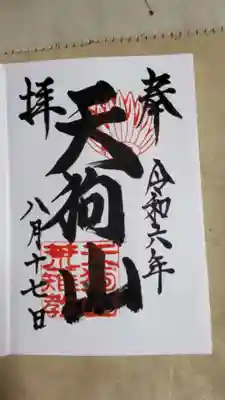 奉拝
天狗山
令和六年
八月十七日